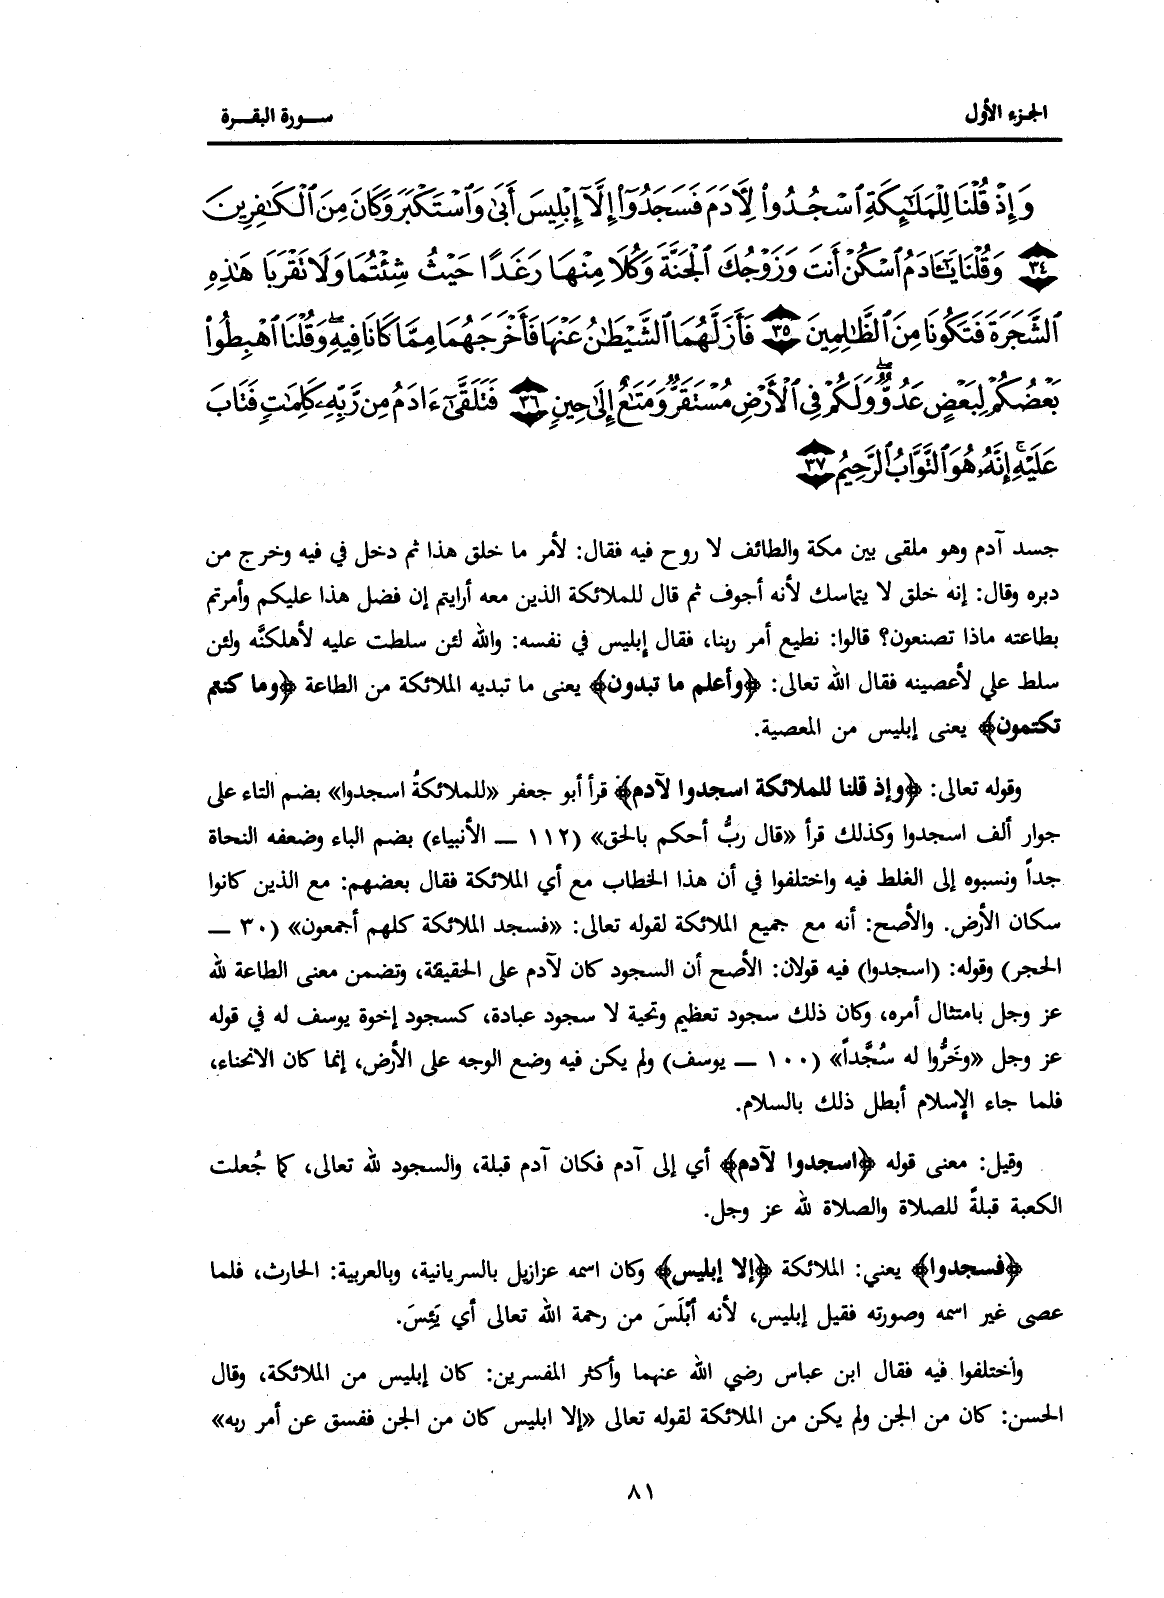 الجزء الأول
سورة البقرة
وَإِذْ قُلْنَا لِلْمَلَٰٓئِكَةِ ٱسْجُدُوا۟ لِءَادَمَ فَسَجَدُوٓا۟ إِلَّآ إِبْلِيسَ أَبَىٰ وَٱسْتَكْبَرَ وَكَانَ مِنَ ٱلْكَٰفِرِينَ
٣٤ وَقُلْنَا يَٰٓـَٔادَمُ ٱسْكُنْ أَنتَ وَزَوْجُكَ ٱلْجَنَّةَ وَكُلَا مِنْهَا رَغَدًا حَيْثُ شِئْتُمَا وَلَا تَقْرَبَا هَٰذِهِ
ٱلشَّجَرَةَ فَتَكُونَا مِنَ ٱلظَّٰلِمِينَ ٣٥ فَأَزَلَّهُمَا ٱلشَّيْطَٰنُ عَنْهَا فَأَخْرَجَهُمَا مِمَّا كَانَا فِيهِ ۖ وَقُلْنَا ٱهْبِطُوا۟
بَعْضُكُمْ لِبَعْضٍ عَدُوٌّ ۖ وَلَكُمْ فِى ٱلْأَرْضِ مُسْتَقَرٌّ وَمَتَٰعٌ إِلَىٰ حِينٍ ٣٦ فَتَلَقَّىٰٓ ءَادَمُ مِن رَّبِّهِۦ كَلِمَٰتٍ فَتَابَ
عَلَيْهِ ۚ إِنَّهُۥ هُوَ ٱلتَّوَّابُ ٱلرَّحِيمُ ٣٧
جسد آدم وهو ملقى بين مكة والطائف لا روح فيه فقال: لأمر ما خلق هذا ثم دخل في فيه وخرج من
دبره وقال: إنه خلق لا يتماسك لأنه أجوف ثم قال للملائكة الذين معه أرايتم إن فضل هذا عليكم وأمرتم
بطاعته ماذا تصنعون؟ قالوا: نطيع أمر ربنا، فقال إبليس في نفسه: والله لئن سلطت عليه لأهلكنَّه ولئن
سلط علي لأعصينه فقال الله تعالى: ﴿وأعلم ما تبدون﴾ يعنى ما تبديه الملائكة من الطاعة ﴿وما كنتم
تكتمون﴾ يعنى إبليس من المعصية.
وقوله تعالى: ﴿وإذ قلنا للملائكة اسجدوا لآدم﴾ قرأ أبو جعفر «للملائكةُ اسجدوا» بضم التاء على
جوار ألف اسجدوا وكذلك قرأ «قال ربُّ أحكم بالحق» (١١٢ ــ الأنبياء) بضم الباء وضعفه النحاة
جداً ونسبوه إلى الغلط فيه واختلفوا في أن هذا الخطاب مع أي الملائكة فقال بعضهم: مع الذين كانوا
سكان الأرض. والأصح: أنه مع جميع الملائكة لقوله تعالى: «فسجد الملائكة كلهم أجمعون» (٣٠ ــ
الحجر) وقوله: (اسجدوا) فيه قولان: الأصح أن السجود كان لآدم على الحقيقة، وتضمن معنى الطاعة لله
عز وجل بامتثال أمره، وكان ذلك سجود تعظيم وتحية لا سجود عبادة، كسجود إخوة يوسف له في قوله
عز وجل «وخَرُّوا له سُجَّداً» (١٠٠ ــ يوسف) ولم يكن فيه وضع الوجه على الأرض، إنما كان الانحناء،
فلما جاء الإسلام أبطل ذلك بالسلام.
وقيل: معنى قوله ﴿اسجدوا لآدم﴾ أي إلى آدم فكان آدم قبلة، والسجود لله تعالى، كما جُعلت
الكعبة قبلةً للصلاة والصلاة لله عز وجل.
﴿فسجدوا﴾ يعني: الملائكة ﴿إلا إبليس﴾ وكان اسمه عزازيل بالسريانية، وبالعربية: الحارث، فلما
عصى غير اسمه وصورته فقيل إبليس، لأنه أبْلَسَ من رحمة الله تعالى أي يَئِسَ.
واختلفوا فيه فقال ابن عباس رضي الله عنهما وأكثر المفسرين: كان إبليس من الملائكة، وقال
الحسن: كان من الجن ولم يكن من الملائكة لقوله تعالى «إلا ابليس كان من الجن ففسق عن أمر ربه»
٨١